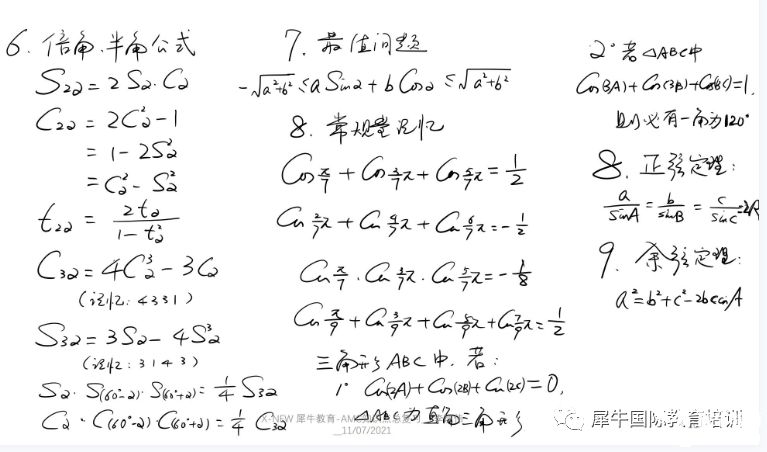 6. 倍角、半角公式
S₂α = 2Sα·Cα
C₂α = 2Cα² - 1
= 1 - 2Sα²
= Cα² - Sα²
t₂α = 2tα / (1 - tα²)
C₃α = 4Cα³ - 3Cα
(记忆: 4331)
S₃α = 3Sα - 4Sα³
(记忆: 3143)
Sα·S(60°-α)·S(60°+α) = 1/4 S₃α
Cα·C(60°-α)·C(60°+α) = 1/4 C₃α
7. 最值问题
-√(a²+b²) ≤ a Sinα + b Cosα ≤ √(a²+b²)
8. 常规量记忆
Cos π/7 + Cos 3/7 π + Cos 5/7 π = 1/2
Cos 2/7 π + Cos 4/7 π + Cos 6/7 π = -1/2
Cos π/7 · Cos 3/7 π · Cos 5/7 π = -1/8
Cos π/9 + Cos 3/9 π + Cos 5/9 π + Cos 7/9 π = 1/2
三角形ABC中, 若:
1° Cos(2A) + Cos(2B) + Cos(2C) = 0,
△ABC为直角三角形
2° 若△ABC中
Cos(3A) + Cos(3B) + Cos(3C) = 1,
则必有一角为120°
8. 正弦定理:
a/sinA = b/sinB = c/sinC = 2R
9. 余弦定理:
a² = b² + c² - 2bccosA
X-NEW 犀牛教育-AM
11/07/2021
犀牛国际教育培训